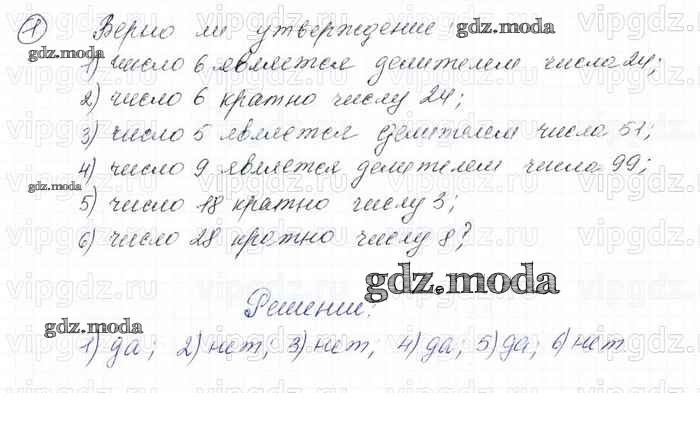 1 Верно ли утверждение: gdz.moda
gdz.moda
1) число 6 является делителем числа 24;
2) число 6 кратно числу 24;
3) число 5 является делителем числа 51;
4) число 9 является делителем числа 99;
gdz.moda
5) число 18 кратно числу 3;
6) число 28 кратно числу 8?
gdz.moda
Решение:
gdz.moda
1) да; 2) нет, 3) нет, 4) да; 5) да; 6) нет
gdz.moda gdz.moda gdz.moda gdz.moda